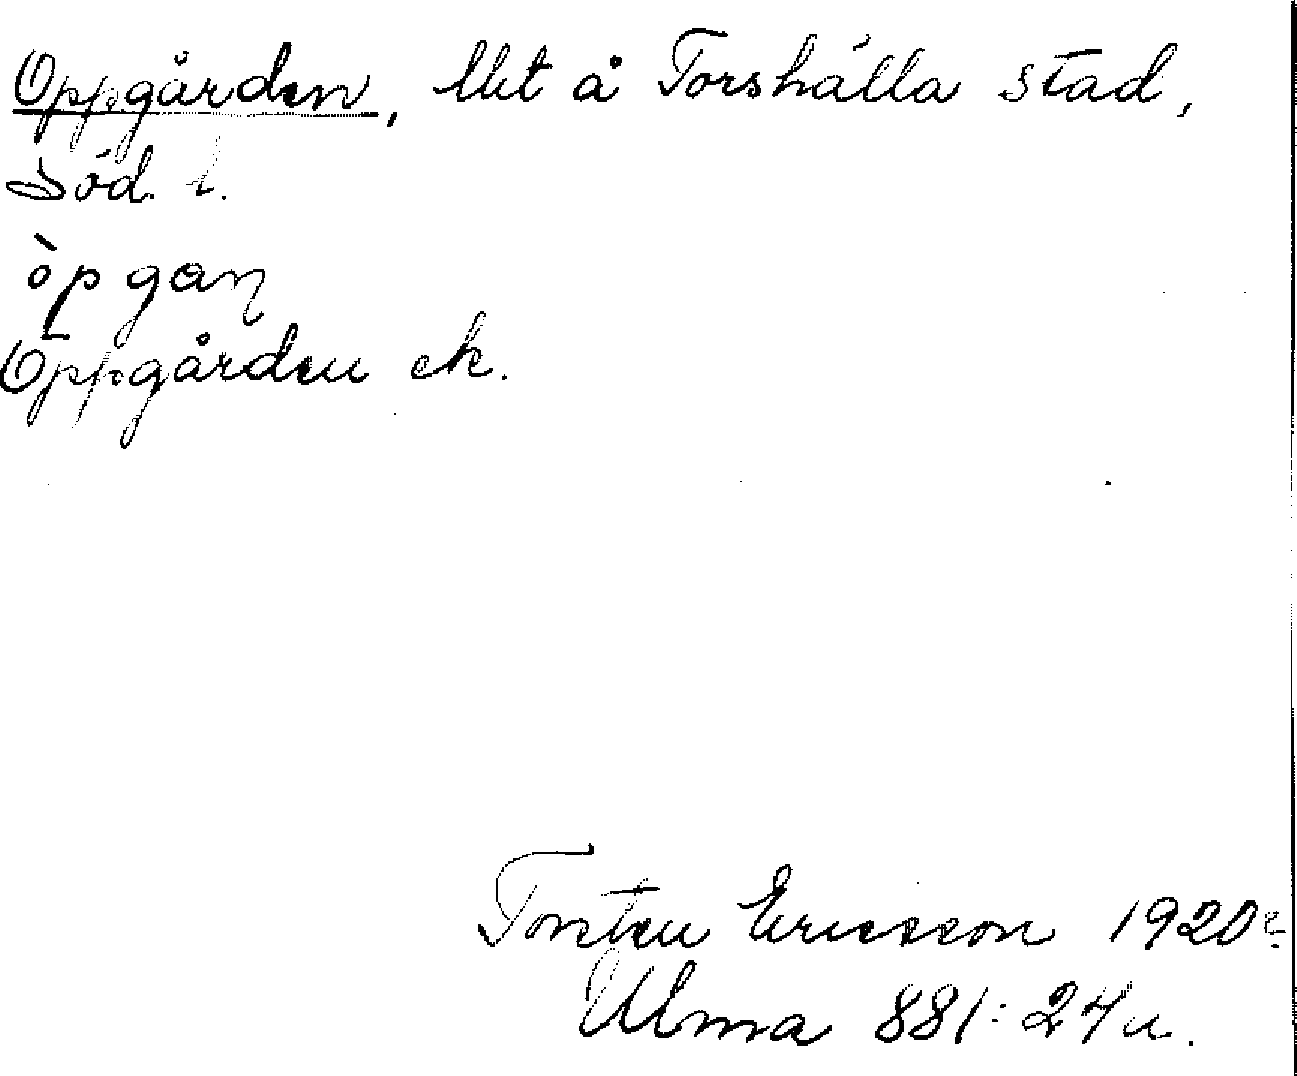 Oppgården, Mt å Torshälla stad,
Söd. l.
òpgaɳ
Oppgården ek.
Torsten Ericsson 1920
Ulma 881:24 u.